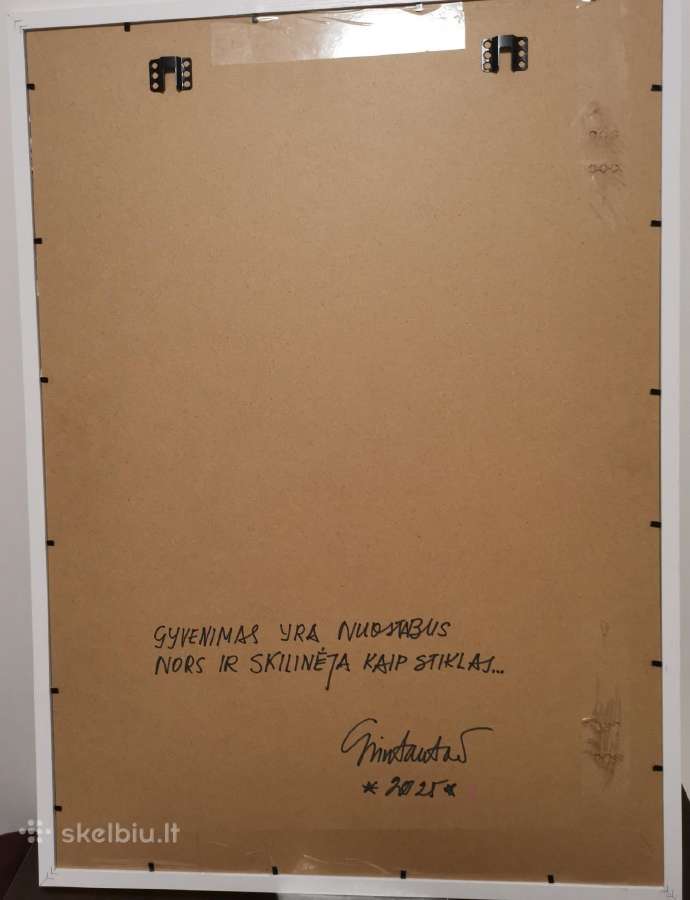 GYVENIMAS YRA NUOSTABUS
NORS IR SKILINĖJA KAIP STIKLAS...
Gintautas
*2025*
skelbiu.lt